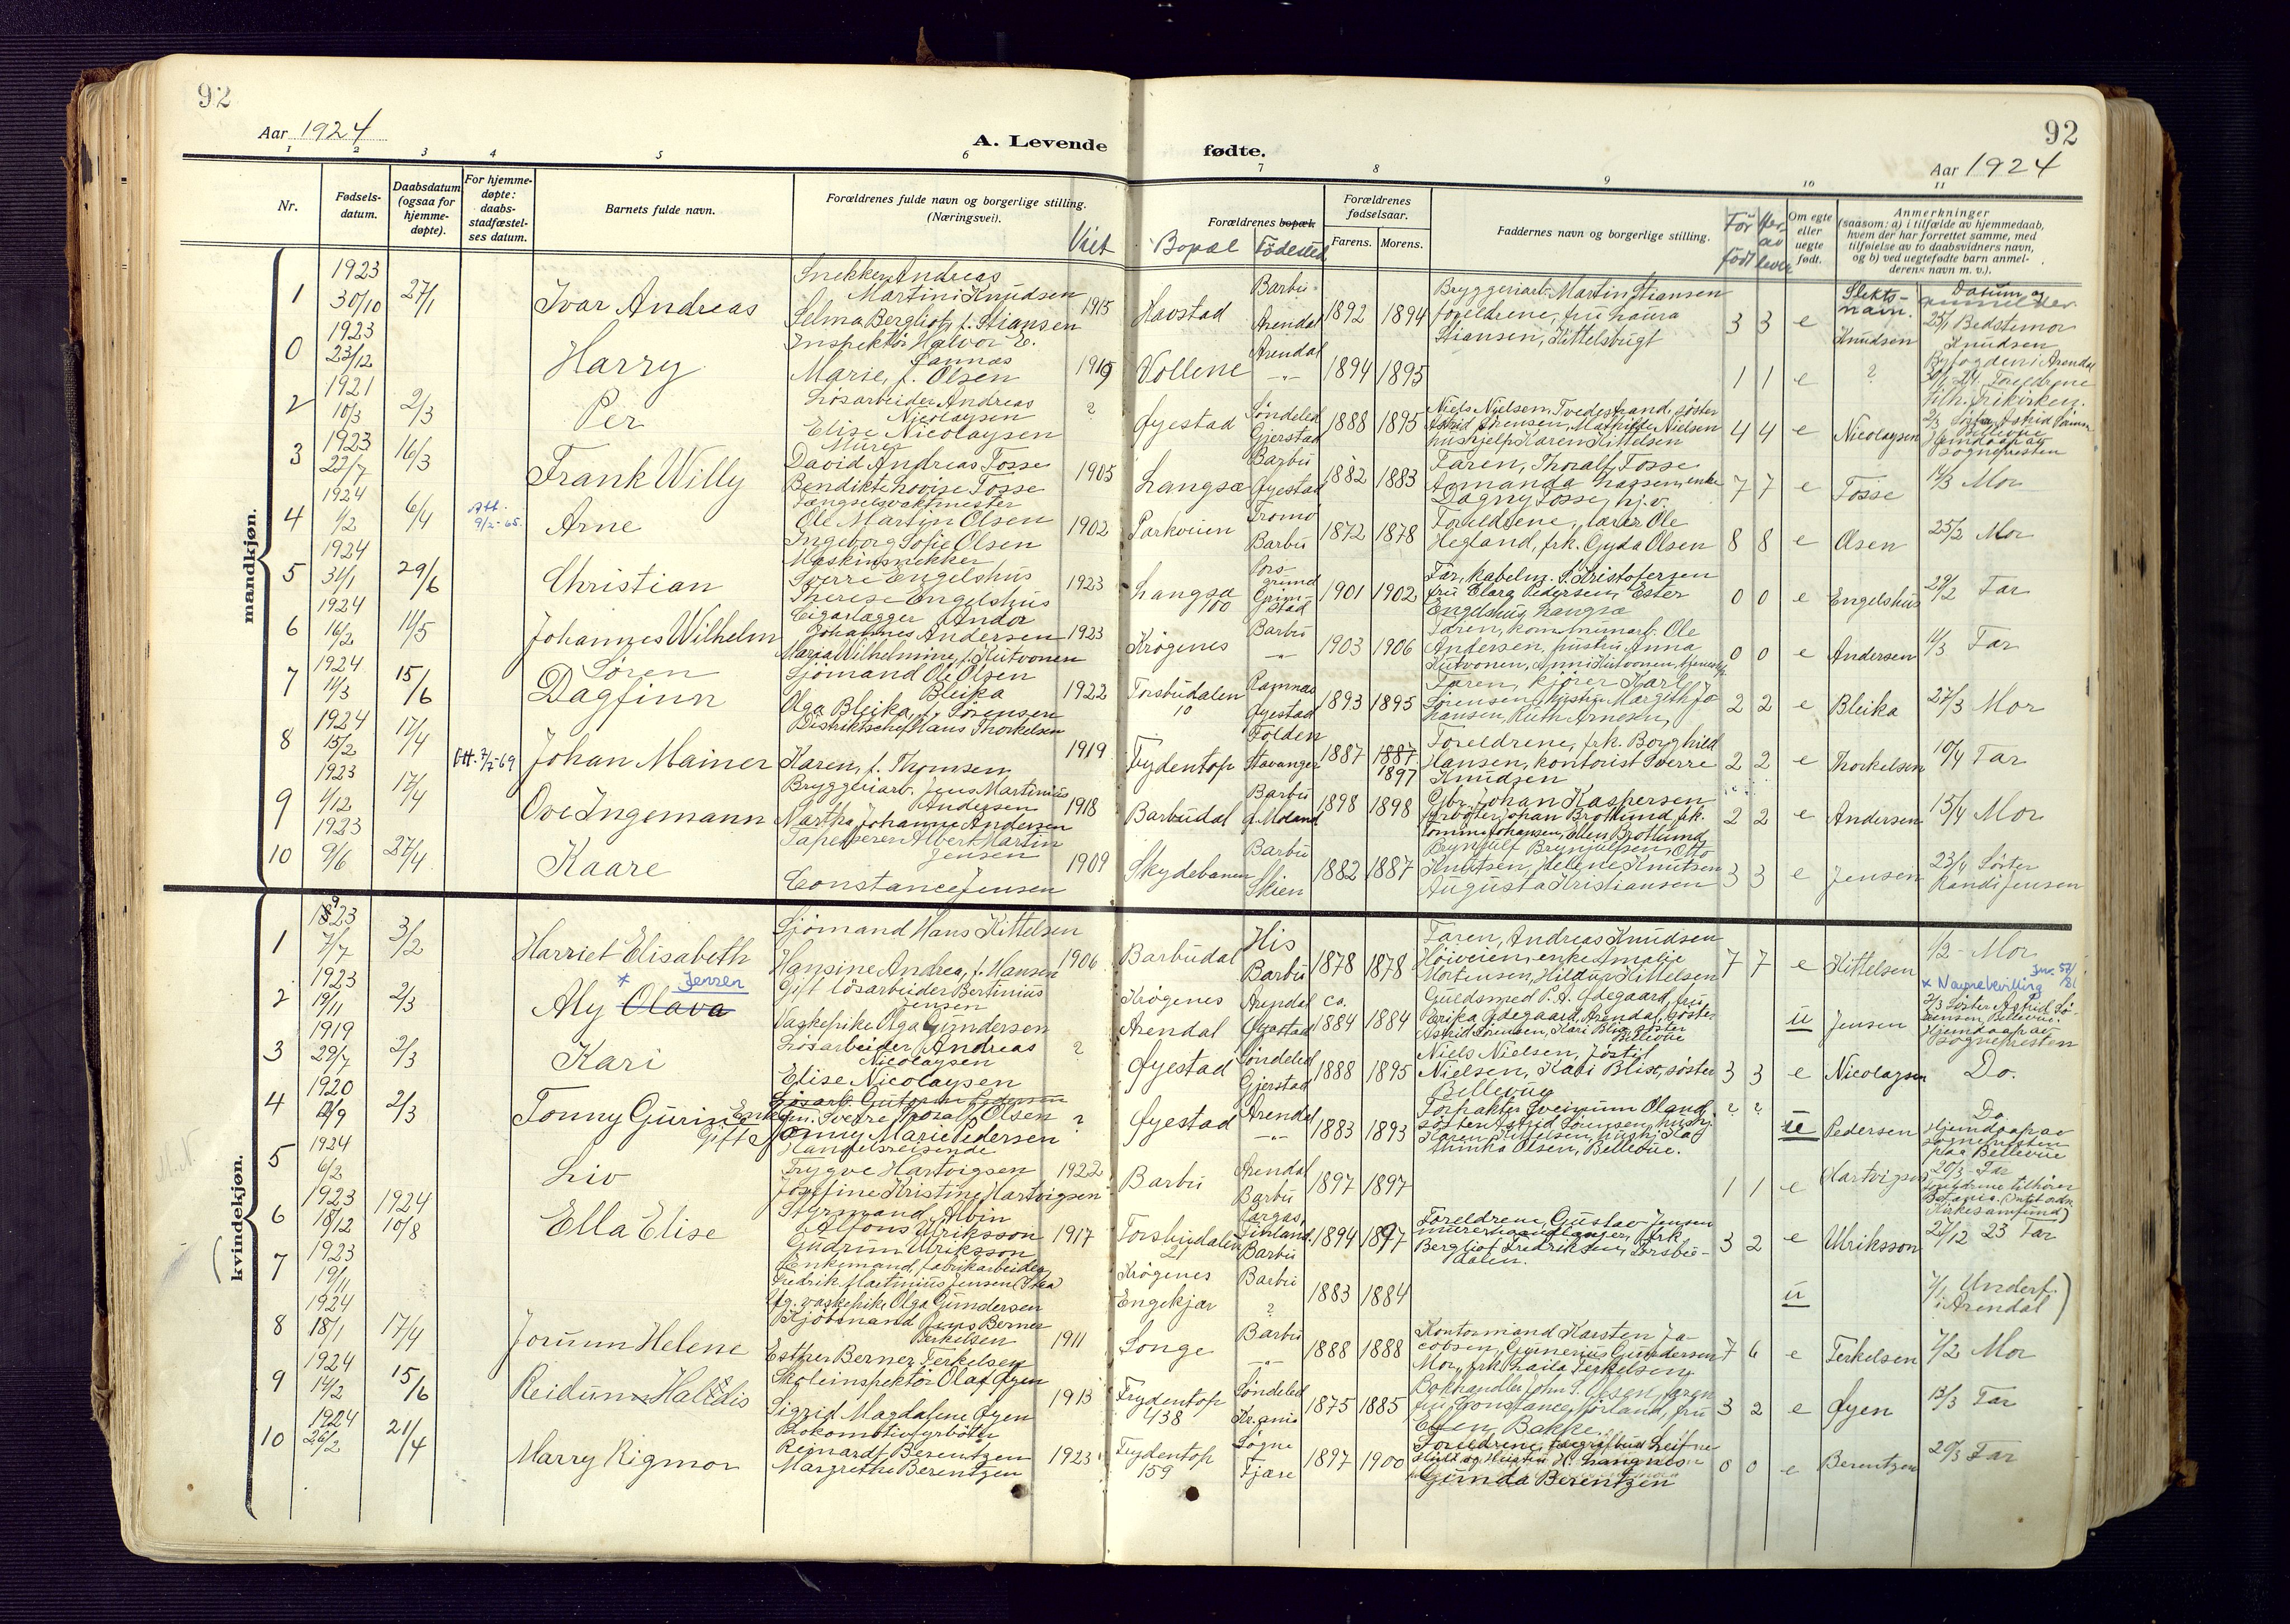 92
92
Aar 1924
A. Levende
fødte.
Aar 1924
1 2 3 4 5 6 7 8 9 10 11
Nr.
Fødsels-
datum.
Daabsdatum
(ogsaa for
hjemme-
døpte).
For hjemme-
døpte:
daabs-
stadfæstel-
ses datum.
Barnets fulde navn.
Forældrenes fulde navn og borgerlige stilling.
(Næringsvei).
Viet
Forældrenes bopæl.
Bopæl Födested
Forældrenes
fødselsaar.
Farens. Morens.
Faddernes navn og borgerlige stilling.
Før
født
Her-
av
lever
Om egte
eller
uegte
født.
Anmerkninger
(saasom: a) i tilfælde av hjemmedaab,
hvem der har forrettet samme, med
tilføielse av to daabsvidners navn,
og b) ved uegtefødte barn anmel-
derens navn m. v.).
Slekts-
navn.
Datum og
anmelder.
mandkjøn.
1
1923
30/10
27/1
Ivar Andreas
Snekker Andreas
Martini Knudsen
Selma Bergliot, f. Stiansen
1915
Havstad
Barbu
Arendal
1892 1894
Bryggeriarb. Martin Stiansen
foreldrene, fru Laura
Stiansen, Kittelsbugt
3 3 e
Knudsen
25/1 Bedstemor
Knudsen
0
1923
23/12
Harry
Inspektör Halvor E.
Sannas
Marie, f. Olsen
1919
Vollene
Arendal
-"-
1894 1895
1 1 e
?
Byfogden i Arendal
Foreldrene
tilh. frikirken.
2
1921
10/3
2/3
Per
Lösarbeider Andreas
Nicolaysen
Elise Nicolaysen
?
Øyestad
Söndeled
Gjerstad
1888 1895
Niels Nielsen, Tvedestrand, söster
Astrid Sörensen, Mathilde Nielsen
hushjelp Karen Kittelsen
4 4 e
Nicolaysen
2/3 Söster Astrid Sörensen
Bellevue
Hjemdaap av
sognepresten
3
1923
22/7
16/3
Frank Willy
Murer
David Andreas Fosse
Bendikte Lovise Fosse
1905
Langsæ
Barbu
Øyestad
1882 1883
Faren, Thoralf Fosse
Amanda Lassen, enke
Dagny Fosse, hj.v.
7 7 e
Fosse
14/3 Mor
4
1924
1/2
6/4
Att.
9/2-65.
Arne
Fængselsvaktmester
Ole Martin Olsen
Ingeborg Sofie Olsen
1902
Parkveien
Tromö
Barbu
1872 1878
Foreldrene, lærer Ole
Hegland, frk. Gyda Olsen
8 8 e
Olsen
25/2 Mor
5
1924
31/1
29/6
Christian
Maskinsnekker
Sverre Engelshus
Therese Engelshus
1923
Langsæ
100
Pors-
grund
Grim-
stad
1901 1902
Far, kabelm. S. Kristofersen
fru Clara Pedersen, Ester
Engelshus, Langsæ
0 0 e
Engelshus
29/2 Far
6
1924
16/2
11/5
Johannes Wilhelm
Cigarlægger Andor
Johannes Andersen
Maria Wilhelmine, f. Kutvonen
1923
Krögenes
Barbu
-"-
1903 1906
Faren, kommunearb. Ole
Andersen, hustru Anna
Kutvonen, Anni Kutvonen,
0 0 e
Andersen
11/3 Far
7
1924
11/3
15/6
Søren
Dagfinn
Sjömand Ole Olsen
Bleika
Olga Bleika, f. Sørensen
1922
Torsbudalen
10
Ramnæs
Øyestad
1893 1895
Faren, kjører Karl
Sörensen, hustru Margith Jo
hansen, Ruth Arnesen,
2 2 e
Bleika
27/3 Mor
8
1924
15/2
17/4
Att. 7/7-69
Johan Mainer
Distriktschef Hans Thorkelsen
Karen, f. Thomsen
1919
Frydentop
Folden
Stavanger
1887 1887
1897
Foreldrene, frk. Borghild
Hansen, kontorist Sverre
Knudsen
2 2 e
Thorkelsen
10/4 Far
9
1923
4/12
17/4
Ove Ingemann
Bryggeriarb. Jens Martinius
Andersen
Martha Johanne Andersen
1918
Barbudal
Barbu
Ø. Moland
1898 1898
Gbr. Johan Kaspersen
fyrböter Johan Brotlund, frk.
Tomine Johansen, Ellen Brotlund
2 2 e
Andersen
15/4 Mor
10
1923
9/6
27/4
Kaare
Tapetserer Albert Martin
Jensen
Constance Jensen
1909
Skydebanen
Barbu
Skien
1882 1887
Brynjulf Brynjulfsen, Otto
Knutsen, Helene Knutsen
Augusta Kristiansen
3 3 e
Jensen
23/4 Söster
Randi Jensen
kvindekjøn.
1
1923
7/7
3/2
Harriet Elisabeth
Sjömand Hans Kittelsen
Hansine Andrea, f. Hansen
1906
Barbudal
His
Barbu
1878 1878
Faren, Andreas Knudsen
Höiveien, enke Amalie
Mortensen, Hildur Kittelsen
7 7 e
Kittelsen
1/2 - Mor
2
1923
19/11
2/3
* Jensen
Aly Olava
Gift lösarbeider Bertinius
Jensen
Vaskepike Olga Gundersen
Krögenes
Arendal
Arendal
Øyestad
ca.
1884 1884
Guldsmed P. A. Ødegaard, fru
Erika Ødegaard, Arendal, söster
Astrid Sörensen, Kari Blix, söster
Bellevue
u
Jensen
* Navnebevilling
Jnr. 57/
81
2/3 Söster Astrid Sö-
rensen, Bellevue.
Hjemdaap av
sognepresten
3
1919
29/7
2/3
Kari
Lösarbeider Andreas
Nicolaysen
Elise Nicolaysen
?
Øyestad
Söndeled
Gjerstad
1888 1895
Niels Nielsen, Jöstil
Nielsen, Kari Blix, söster
Bellevue
3 3 e
Nicolaysen
Do.
4
1920
2/9
2/3
Tonny Gurine
Enkem. Sverre Thoralf Olsen
Gift Jenny Marie Pedersen
?
Øyestad
Arendal
-"-
1883 1893
Forpakter Sveinum Oland
söster Astrid Sörensen, hushj.
Karen Kittelsen, hushj. Kat
thinka Olsen, Bellevue.
? ? u
Pedersen
Do
Hjemdaap av
sognepresten
paa Bellevue
5
1924
6/2
Liv
Handelsreisende
Trygve Hartvigsen
Josefine Kristine Hartvigsen
1922
Barbu
Arendal
Barbu
1897 1897
1 1 e
Hartvigsen
20/3 - Far
Foreldrene tilhører
Betania. (Intet ordn.
Kirkesamfund)
6
1923
18/12
1924
10/8
Ella Elise
Styrmand Alvin
Alfons Ulriksson
Gudrun Ulriksson
1917
Torsbudalen
21
Pargas,
Finland
Barbu
1894 1897
Foreldrene, Gustav Jensen
murerhaandlanger, frk.
Bergliot Fredriksen, Torsbu-
dalen.
3 2 e
Ulriksson
27/12 23 Far
7
1923
19/11
Enkemand, fabrikarbeider
Fredrik Martinius Jensen (Stea)
Ug. vaskepike Olga Gundersen
Krögenes
Engekjær
Barbu
?
1883 1884
u
7/1 Underf.
i Arendal)
8
1924
18/1
17/4
Jorunn Helene
Kjöbmand Jens Berner
Terkelsen
Esther Berner Terkelsen
1911
Songe
Barbu
-"-
1888 1888
Kontormand Karsten Ja
cobsen, Gunerius Gundersen
Mor, frk. Laila Terkelsen
7 6 e
Terkelsen
7/2 Mor
9
1924
14/2
15/6
Reidun Halldis
Skoleinspektör Olaf Øyen
Sigrid Magdalene Øyen
1913
Frydentop
438
Söndeled
Kr.ania
1875 1885
Bokhandler John S. Olsen,
fru Constance Sörland, fru
Ellen Bakke.
3 2 e
Øyen
13/3 Far
10
1924
26/2
21/4
Marry Rigmor
Lokomotivfyrböter
Reinardt Berentzen
Margrethe Berentzen
1923
Frydentop
159
Søgne
Fjære
1897 1900
Foreldrene,
Gunda Berentzen
0 0 e
Berentzen
20/3 Far